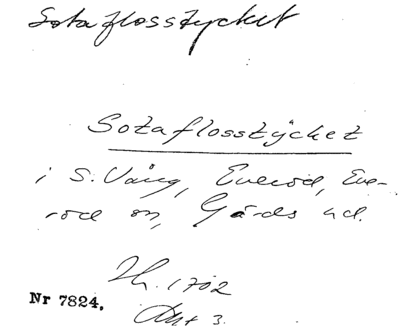 Sotaflosstycket
Sotaflosstÿcket
i S. Vång, Everöd, Eve-
röd sn, Gärds hd.
Lh. 1702
Nr 7824. Akt 3.